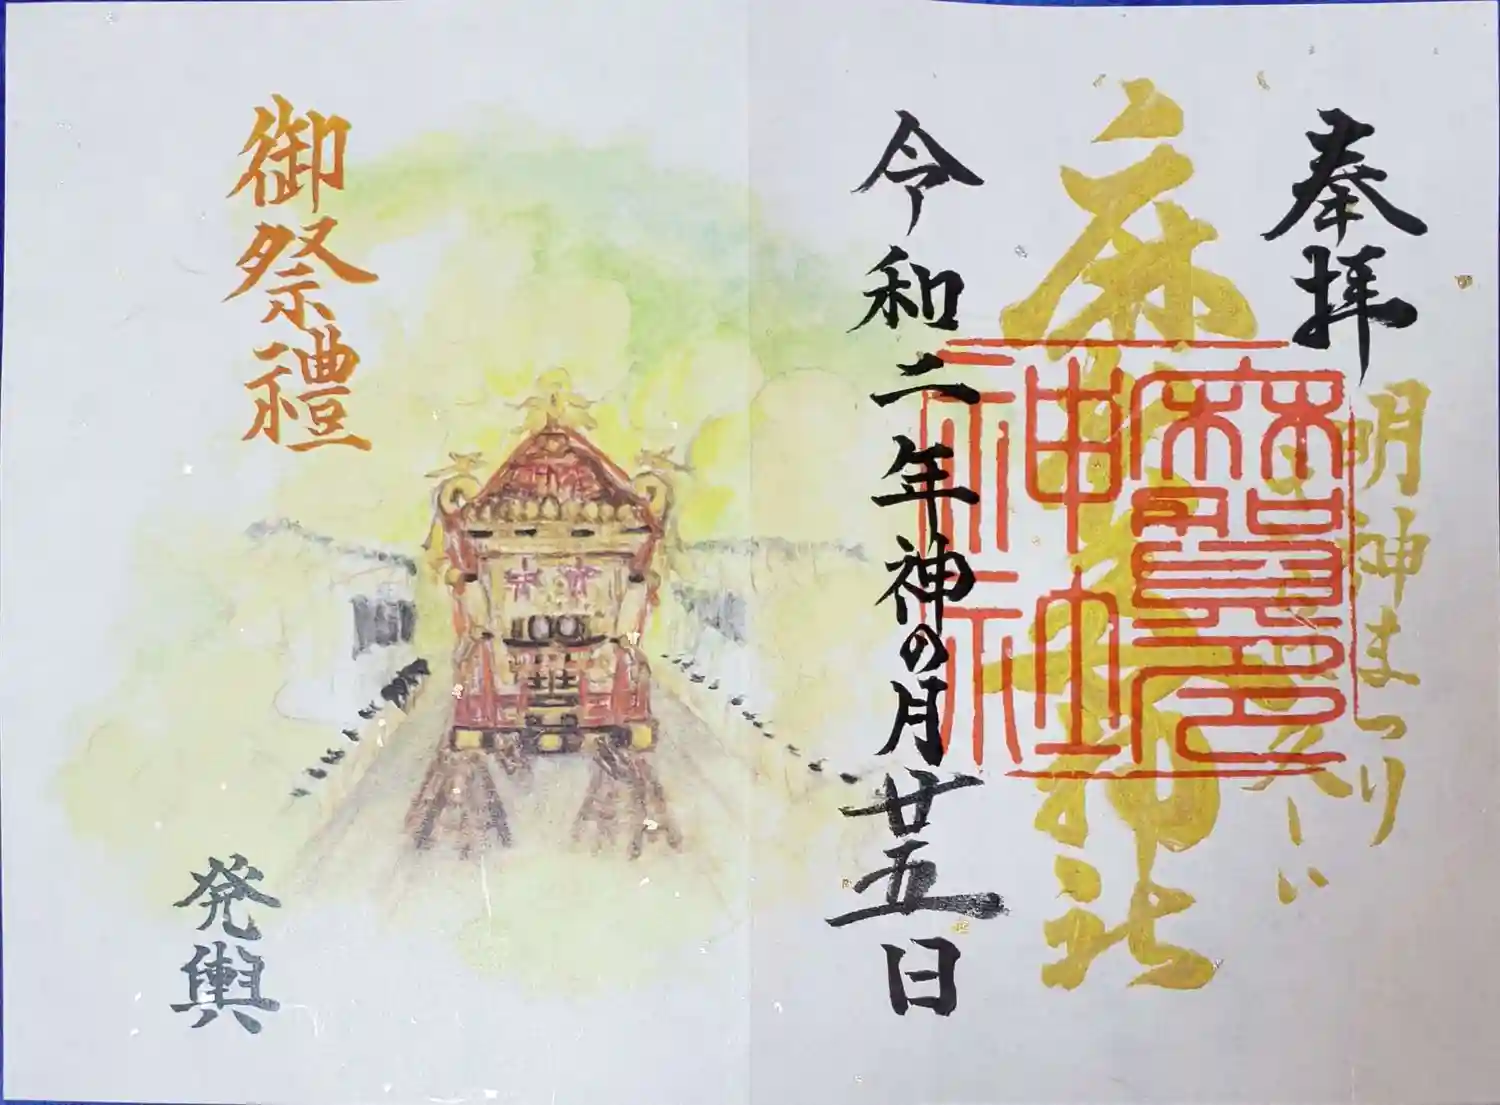 奉拝
明神まつり
麻賀多神社
麻賀多神社
令和二年神の月廿五日
御祭禮
発輿